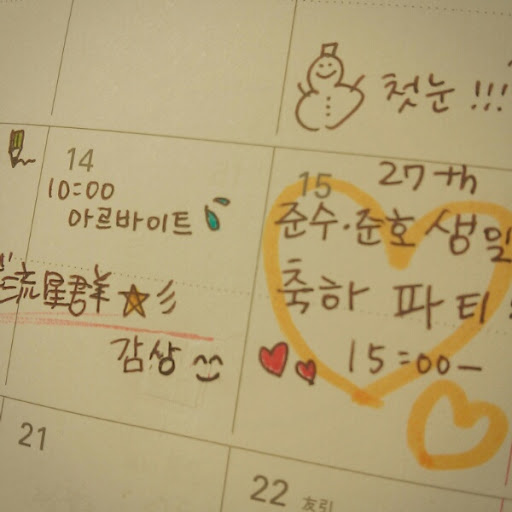 첫눈 !!!
14
10:00
아르바이트
流星群
감상
15
27th
준수·준호 생일
축하 파티
15:00—
21
22 友引